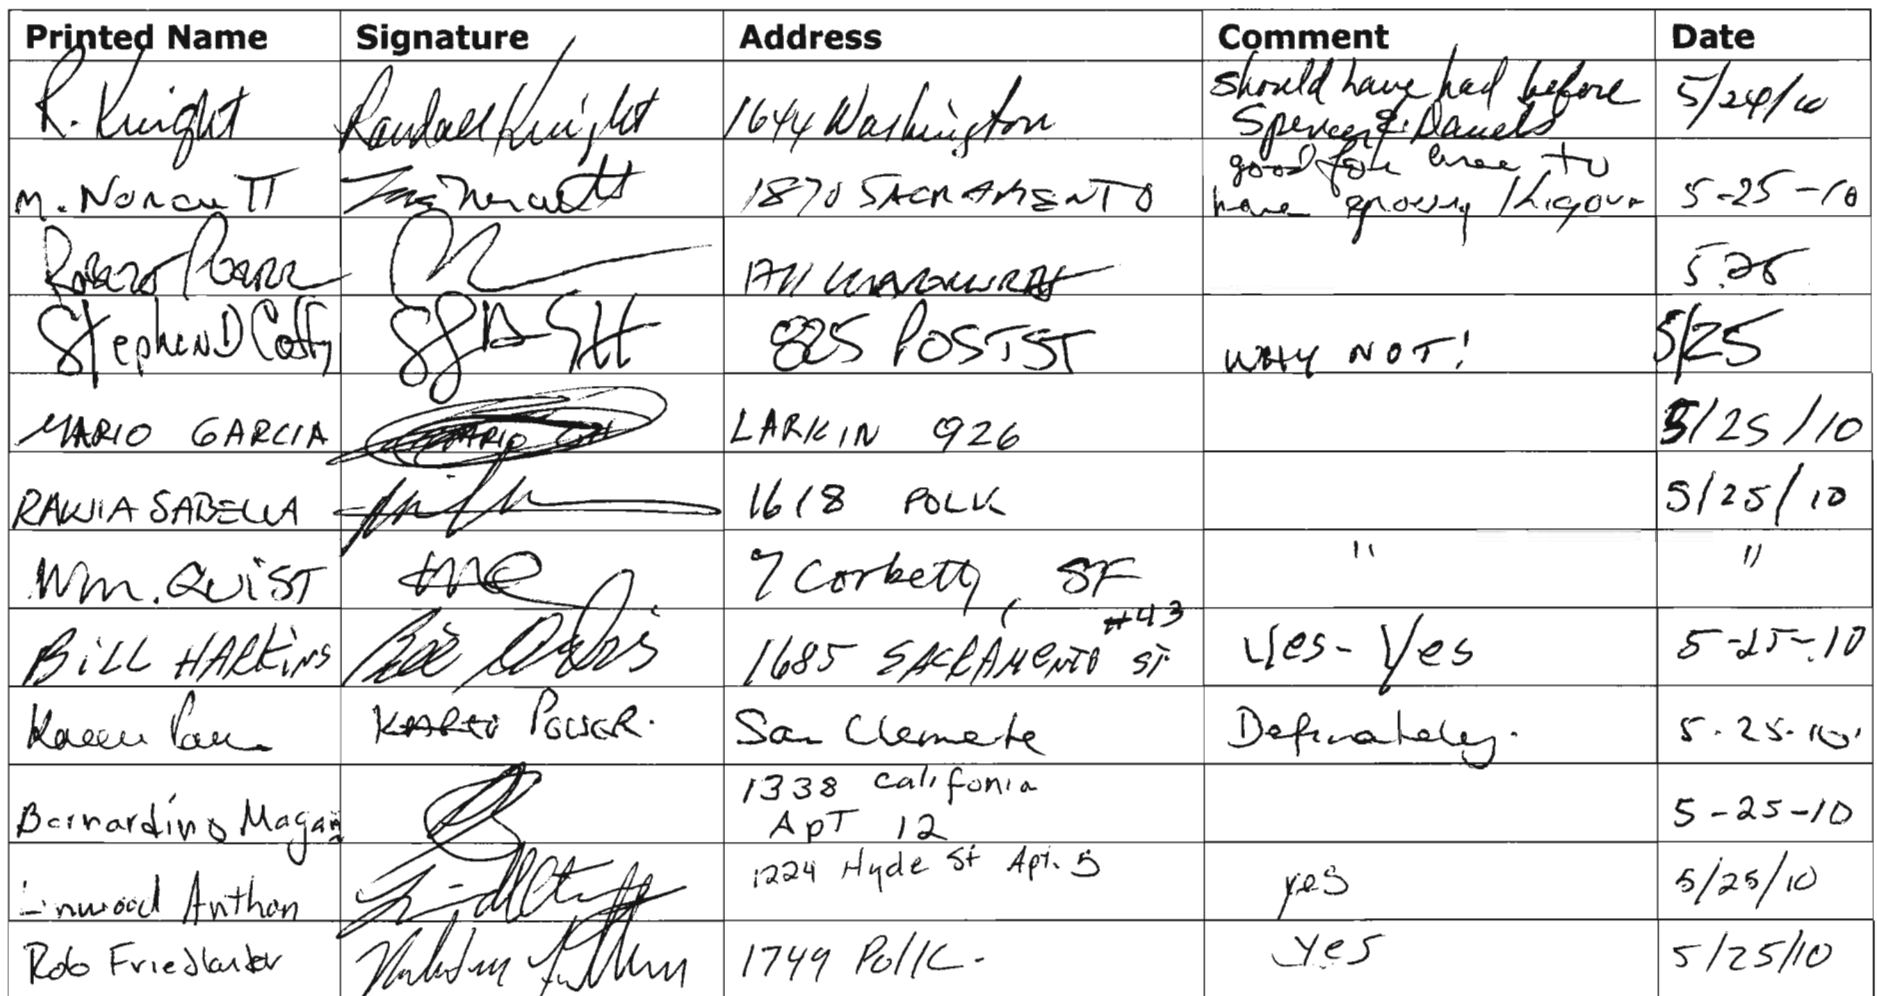 Printed Name Signature Address Comment Date
R. Knight Randall Knight 1644 Washington should have had before Spencer & Daniels 5/24/10
M. Norcutt 1870 SACRAMENTO good for area to have grocery / liquor 5-25-10
Roberto 1711 5.25
Stephen D Coffy 825 POST ST WHY NOT! 5/25
MARIO GARCIA MARIO LARKIN 926 5/25/10
RAWIA SABELLA 1618 POLK 5/25/10
Wm. QUIST 7 Corbett, SF " "
BILL HARKINS Bill 1685 SACRAMENTO ST #43 Yes - Yes 5-25-10
Karen POWER. San Clemente Definately. 5-25-10
Bernardino Magan 1338 Califonia APT 12 5-25-10
Linwood Anthon 1224 Hyde St Apt. 5 yes 5/25/10
Rob Friedlander 1749 Polk. yes 5/25/10